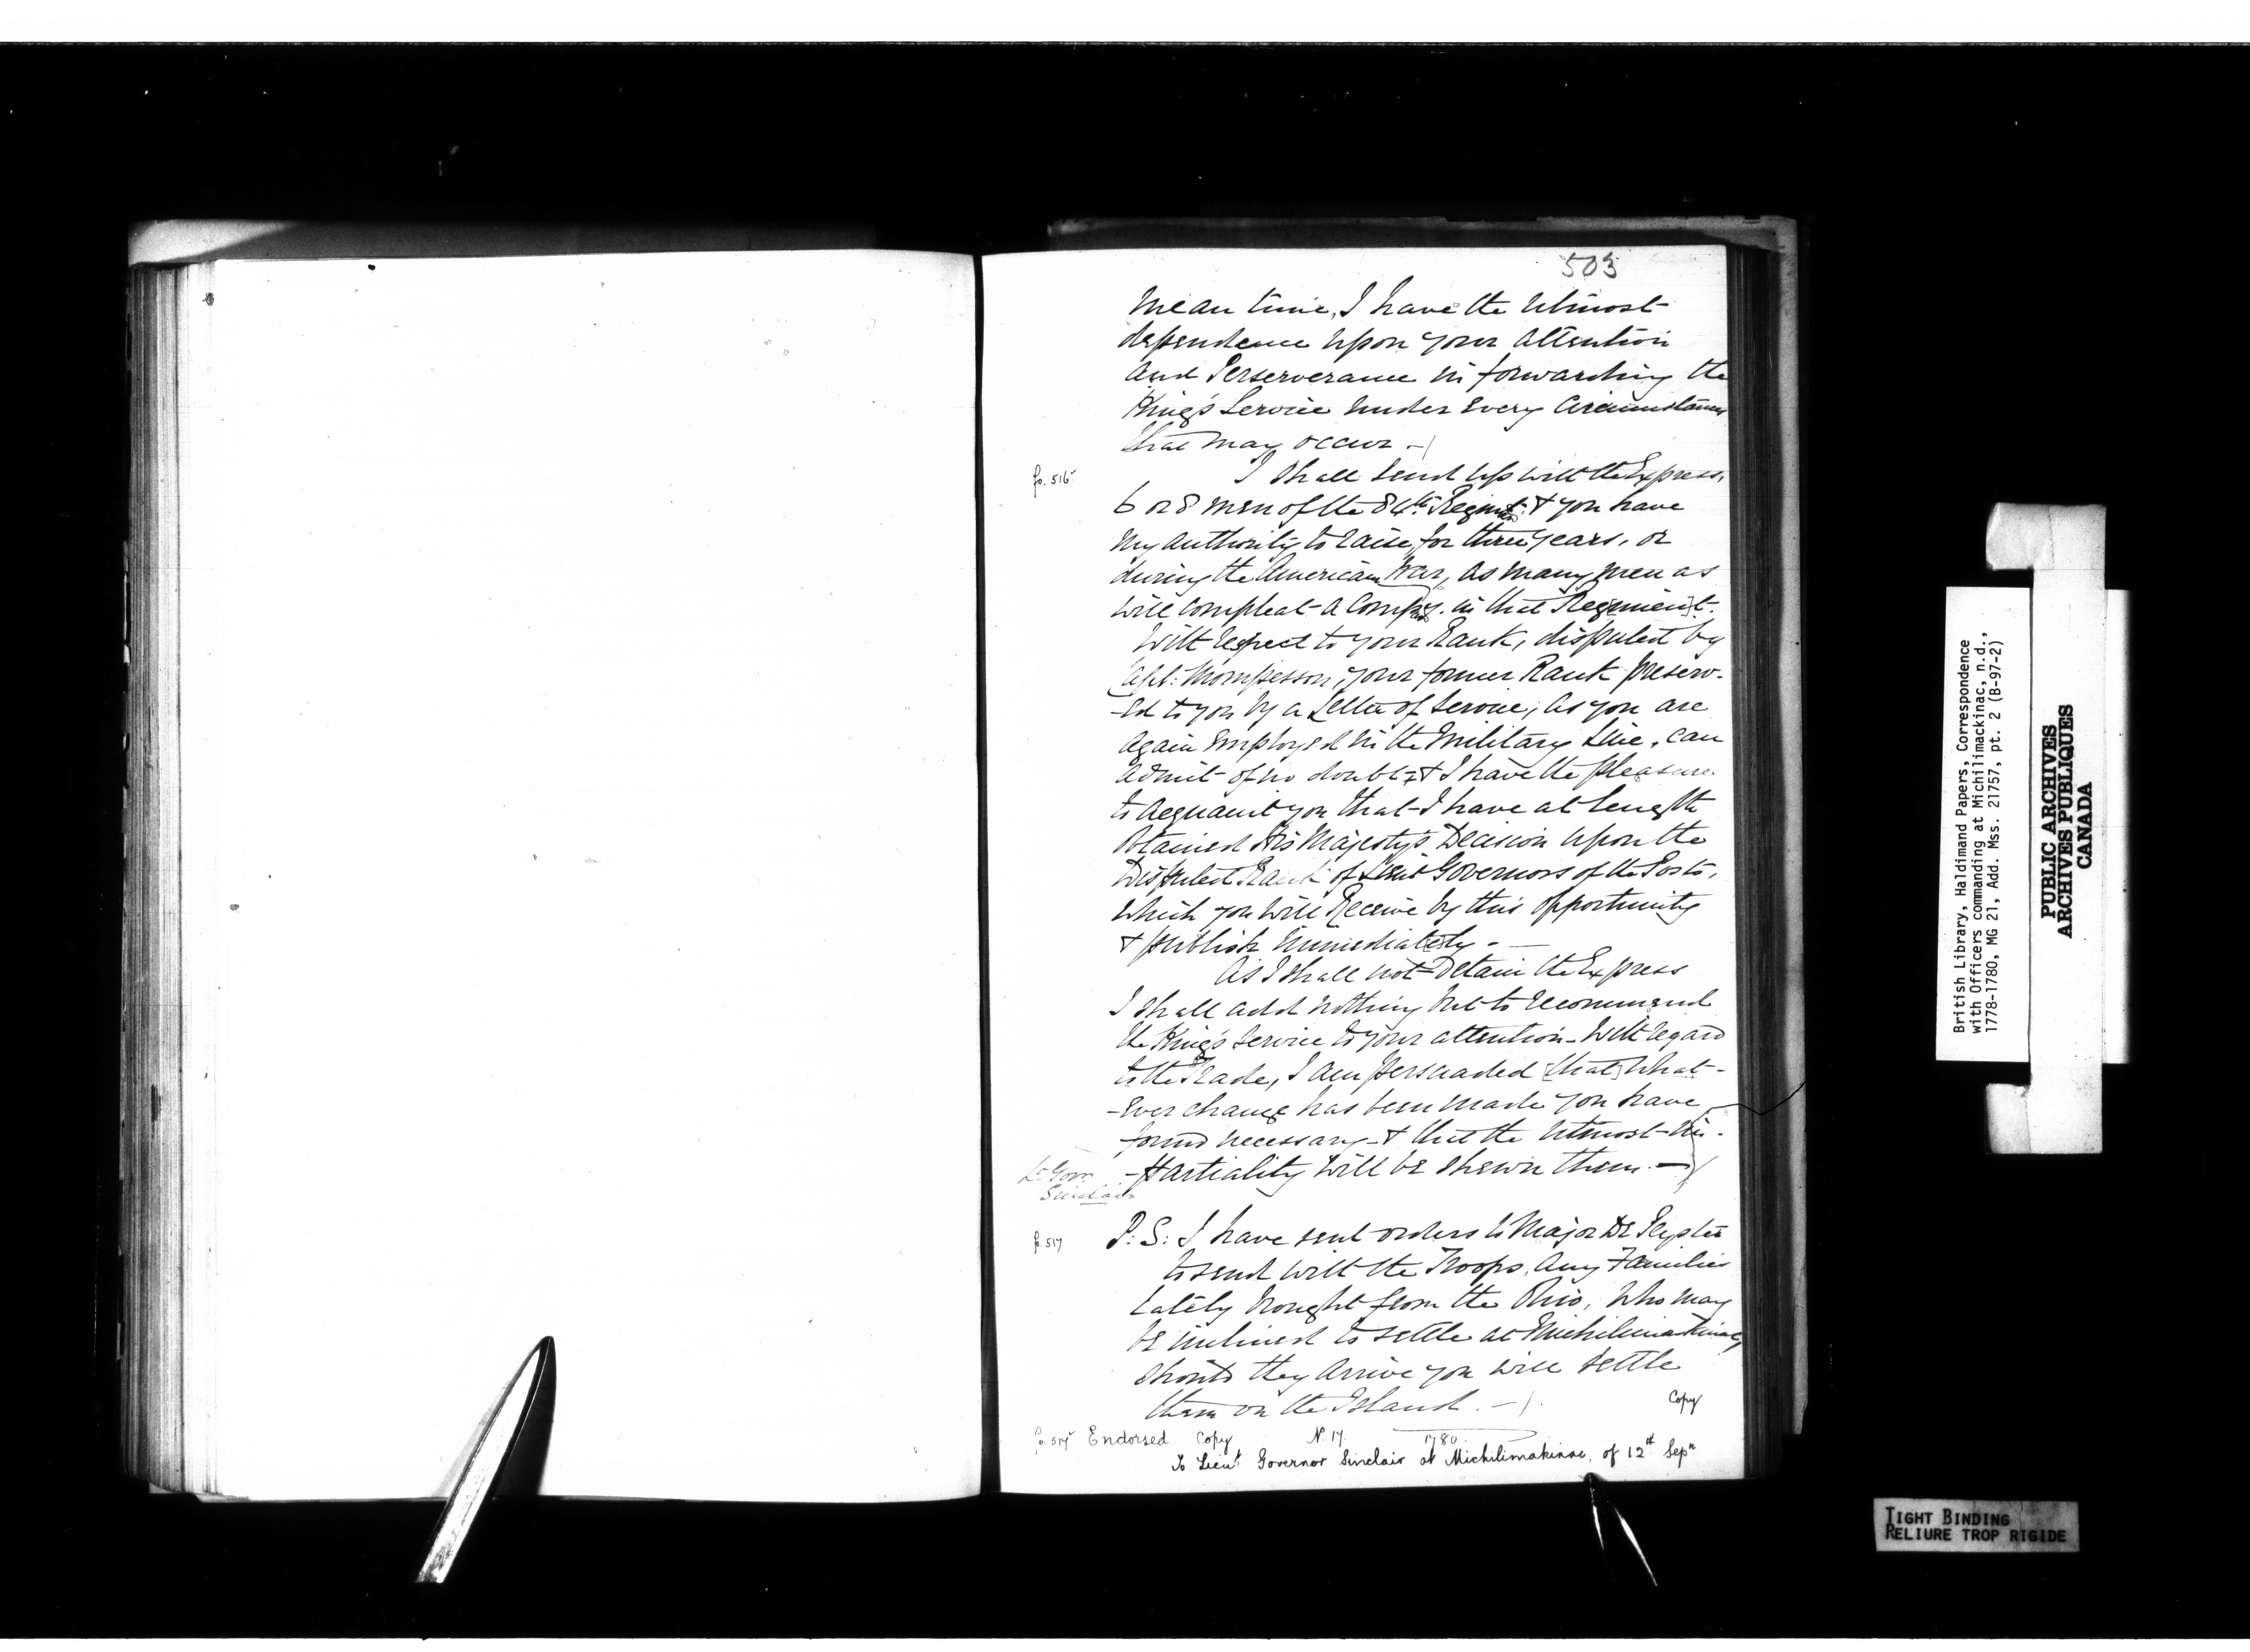 503
mean time, I have the utmost
dependence upon your attention
and Perserverance in forwarding the
King's Service under every Circumstances
that may occur -
fo. 516v
I shall send up with the Express,
6 or 8 men of the 84th Regimt. & you have
my authority to raise, for three years, or
during the American War, as many men as
will compleat a Compy. in that Regiment.
With respect to your Rank, disputed by
Capt: Mompesson, your former Rank preserv-
-ed to you by a Letter of Service, as you are
again employed in the Military Line, can
admit of no doubt & I have the pleasure
to acquaint you that I have at length
obtained His Majesty's Decision upon the
Disputed Rank of Lieut Governors of the Posts,
which you will Receive by this opportunity
& publish immediately. -
As I shall not Detain the Express
I shall add nothing but to recommend
the King's Service to your attention - With regard
to the Trade, I am persuaded [that] what-
-ever change has been made you have
found necessary - & that the utmost im-
-partiality will be shewn them. -
Lt Govr.
Sinclair
fo. 517
P: S: I have sent orders to Major De Peyster
to send with the Troops, any Families
lately brought from the Ohio, who may
be inclined to settle at Michilimakinac,
should they arrive you will settle
them on the Island. -
Copy
fo. 517v Endorsed Copy N. 17. 1780.
To Lieut. Governor Sinclair at Michilimakinac, of 12th Sepr
British Library, Haldimand Papers, Correspondence
with Officers commanding at Michilimackinac, n.d.,
1778-1780, MG 21, Add. Mss. 21757, pt. 2 (B-97-2)
PUBLIC ARCHIVES
ARCHIVES PUBLIQUES
CANADA
TIGHT BINDING
RELIURE TROP RIGIDE